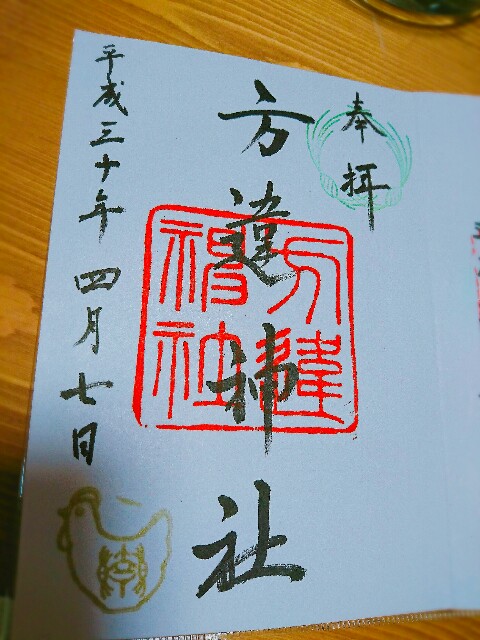 奉拝
方違神社
方違
神社
平成三十年四月七日